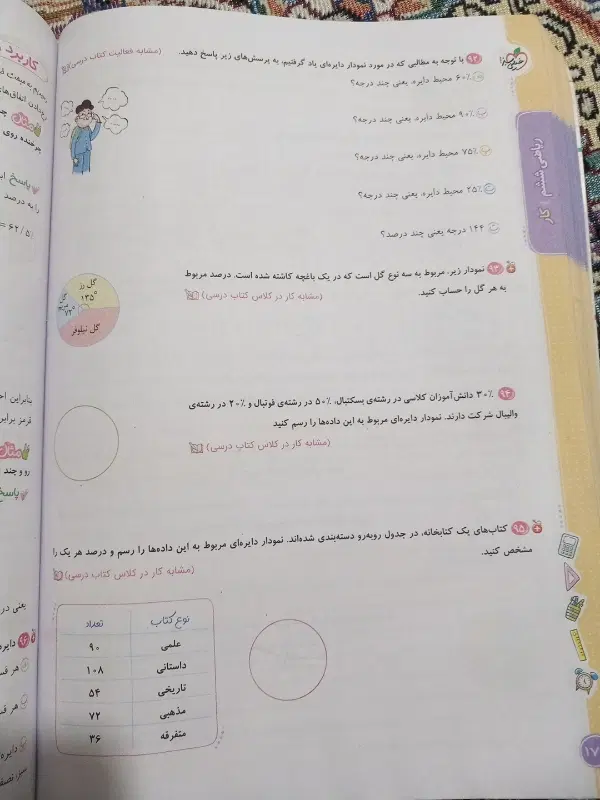 ۹۲ با توجه به مطالبی که در مورد نمودار دایره‌ای یاد گرفتیم، به پرسش‌های زیر پاسخ دهید. (مشابه فعالیت کتاب درسی)
۶۰٪ محیط دایره، یعنی چند درجه؟
۹۰٪ محیط دایره، یعنی چند درجه؟
۷۵٪ محیط دایره، یعنی چند درجه؟
۲۵٪ محیط دایره، یعنی چند درجه؟
۱۴۴ درجه یعنی چند درصد؟
۹۳ نمودار زیر، مربوط به سه نوع گل است که در یک باغچه کاشته شده است. درصد مربوط
به هر گل را حساب کنید. (مشابه کار در کلاس کتاب درسی)
گل رز
۱۳۵°
۷۲°
گل نیلوفر
۹۴ ۳۰٪ دانش‌آموزان کلاسی در رشته‌ی بسکتبال، ۵۰٪ در رشته‌ی فوتبال و ۲۰٪ در رشته‌ی
والیبال شرکت دارند. نمودار دایره‌ای مربوط به این داده‌ها را رسم کنید
(مشابه کار در کلاس کتاب درسی)
۹۵ کتاب‌های یک کتابخانه، در جدول روبه‌رو دسته‌بندی شده‌اند. نمودار دایره‌ای مربوط به این داده‌ها را رسم و درصد هر یک را
مشخص کنید.
(مشابه کار در کلاس کتاب درسی)
نوع کتاب تعداد
علمی ۹۰
داستانی ۱۰۸
تاریخی ۵۴
مذهبی ۷۲
متفرقه ۳۶
ریاضی ششم
کار
۱۷
کاربرد
مثال
چرخنده روی
پاسخ
را به درصد
= ۶۲/۵٪
بنابراین
قرمز برابر
مثال
رو و چند
پاسخ
یعنی در
۹۶ دایره
هر قس
هر قس
دایره‌ای
سبز، نصف